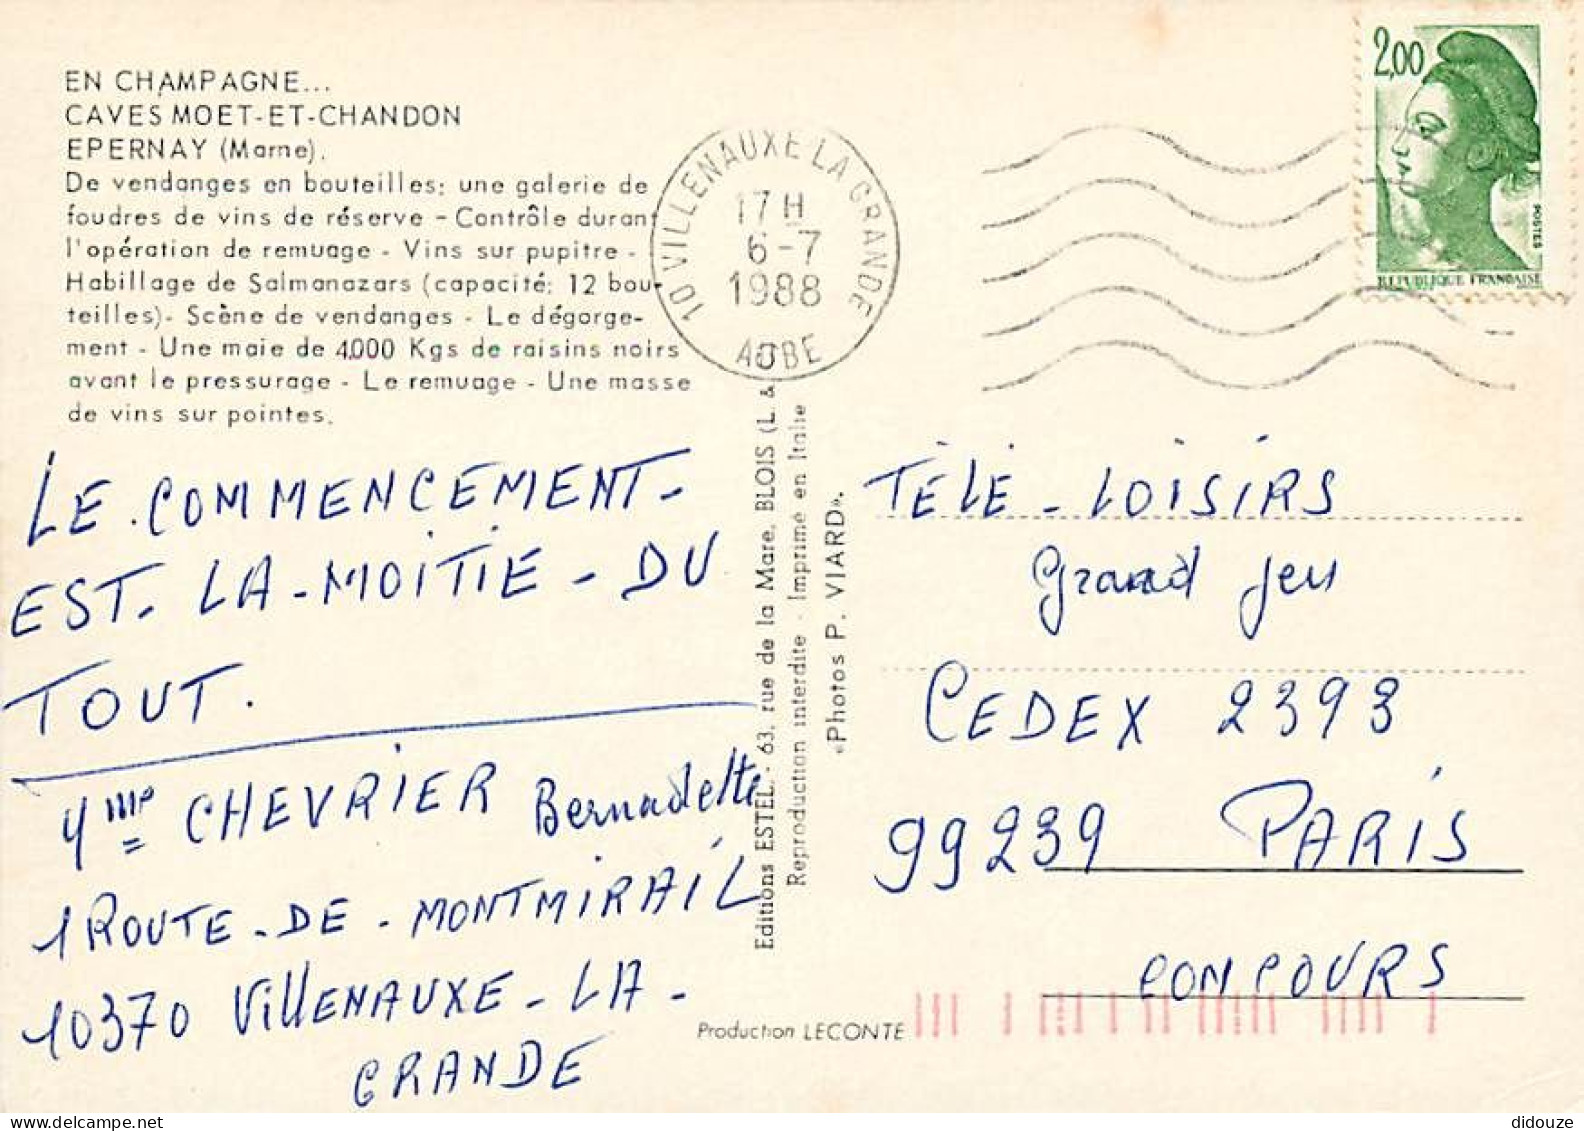 EN CHAMPAGNE...
CAVES MOET-ET-CHANDON
EPERNAY (Marne).
De vendanges en bouteilles: une galerie de
foudres de vins de réserve - Contrôle durant
l'opération de remuage - Vins sur pupitre -
Habillage de Salmanazars (capacité: 12 bou-
teilles)- Scène de vendanges - Le dégorge-
ment - Une maie de 4.000 Kgs de raisins noirs
avant le pressurage - Le remuage - Une masse
de vins sur pointes.
LE COMMENCEMENT-
EST- LA-MOITIE-DU
TOUT.
Mme CHEVRIER Bernadette
1 ROUTE-DE-MONTMIRAIL
10370 VILLENAUXE-LA-
GRANDE
Editions ESTEL. - 63, rue de la Mare, BLOIS (L. &
Reproduction interdite - Imprimé en Italie
«Photos P. VIARD».
Production LECONTE
10 VILLENAUXE LA GRANDE
17 H
6-7
1988
AUBE
2,00
POSTES
REPUBLIQUE FRANÇAISE
TÉLÉ-LOISIRS
Grand jeu
CEDEX 2393
99239 PARIS
CONCOURS
didouze